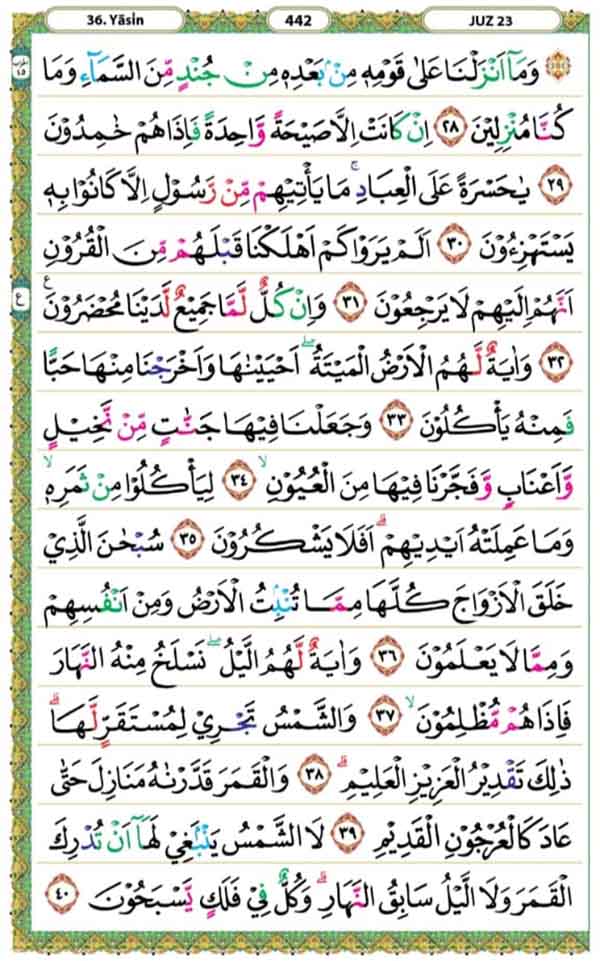 36. Yāsīn 442 JUZ 23
وَمَآ اَنْزَلْنَا عَلٰى قَوْمِهٖ مِنْۢ بَعْدِهٖ مِنْ جُنْدٍ مِّنَ السَّمَاۤءِ وَمَا
كُنَّا مُنْزِلِيْنَ ٢٨ اِنْ كَانَتْ اِلَّا صَيْحَةً وَّاحِدَةً فَاِذَا هُمْ خٰمِدُوْنَ
٢٩ يٰحَسْرَةً عَلَى الْعِبَادِۚ مَا يَأْتِيْهِمْ مِّنْ رَّسُوْلٍ اِلَّا كَانُوْا بِهٖ
يَسْتَهْزِءُوْنَ ٣٠ اَلَمْ يَرَوْا كَمْ اَهْلَكْنَا قَبْلَهُمْ مِّنَ الْقُرُوْنِ
اَنَّهُمْ اِلَيْهِمْ لَا يَرْجِعُوْنَ ٣١ وَاِنْ كُلٌّ لَّمَّا جَمِيْعٌ لَّدَيْنَا مُحْضَرُوْنَ ࣖ
٣٢ وَاٰيَةٌ لَّهُمُ الْاَرْضُ الْمَيْتَةُۖ اَحْيَيْنٰهَا وَاَخْرَجْنَا مِنْهَا حَبًّا
فَمِنْهُ يَأْكُلُوْنَ ٣٣ وَجَعَلْنَا فِيْهَا جَنّٰتٍ مِّنْ نَّخِيْلٍ
وَّاَعْنَابٍ وَّفَجَّرْنَا فِيْهَا مِنَ الْعُيُوْنِۙ ٣٤ لِيَأْكُلُوْا مِنْ ثَمَرِهٖۙ
وَمَا عَمِلَتْهُ اَيْدِيْهِمْۗ اَفَلَا يَشْكُرُوْنَ ٣٥ سُبْحٰنَ الَّذِيْ
خَلَقَ الْاَزْوَاجَ كُلَّهَا مِمَّا تُنْۢبِتُ الْاَرْضُ وَمِنْ اَنْفُسِهِمْ
وَمِمَّا لَا يَعْلَمُوْنَ ٣٦ وَاٰيَةٌ لَّهُمُ الَّيْلُۖ نَسْلَخُ مِنْهُ النَّهَارَ
فَاِذَا هُمْ مُّظْلِمُوْنَۙ ٣٧ وَالشَّمْسُ تَجْرِيْ لِمُسْتَقَرٍّ لَّهَاۗ
ذٰلِكَ تَقْدِيْرُ الْعَزِيْزِ الْعَلِيْمِۗ ٣٨ وَالْقَمَرَ قَدَّرْنٰهُ مَنَازِلَ حَتّٰى
عَادَ كَالْعُرْجُوْنِ الْقَدِيْمِ ٣٩ لَا الشَّمْسُ يَنْۢبَغِيْ لَهَآ اَنْ تُدْرِكَ
الْقَمَرَ وَلَا الَّيْلُ سَابِقُ النَّهَارِۗ وَكُلٌّ فِيْ فَلَكٍ يَّسْبَحُوْنَ ٤٠